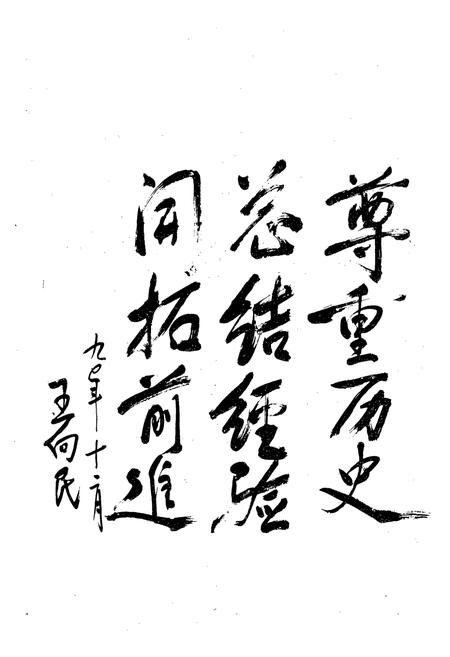 尊重历史
总结經验
開拓前進
九〇年十二月
王向民